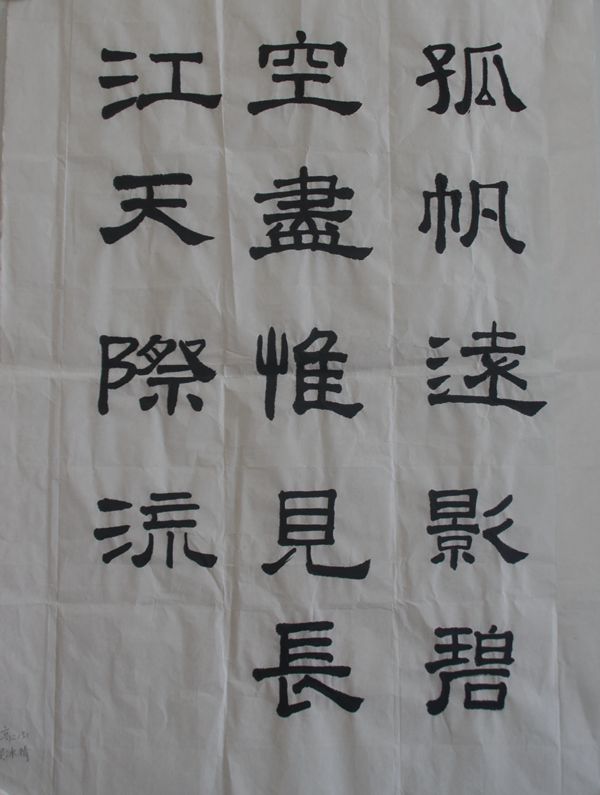 孤帆遠影碧
空盡惟見長
江天際流